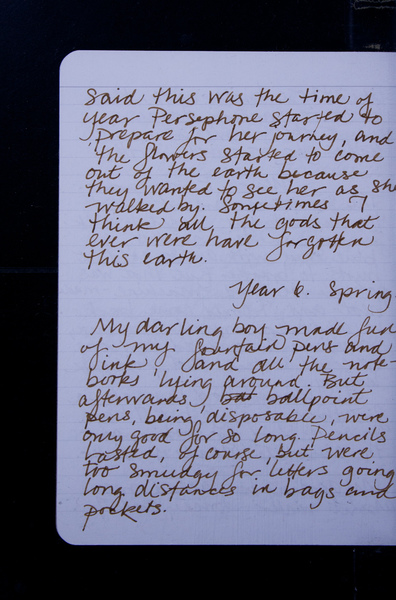 said this was the time of
year Persephone started to
prepare for her journey, and
the flowers started to come
out of the earth because
they wanted to see her as she
walked by. Sometimes I
think all the gods that
ever were have forgotten
this earth.
Year 6. Spring.
My darling boy made fun
of my fountain pens and
ink, and all the note-
books lying around. But
afterwards, bat ballpoint
pens, being disposable, were
only good for so long. Pencils
lasted, of course, but were
too smudgy for letters going
long distances in bags and
pockets.